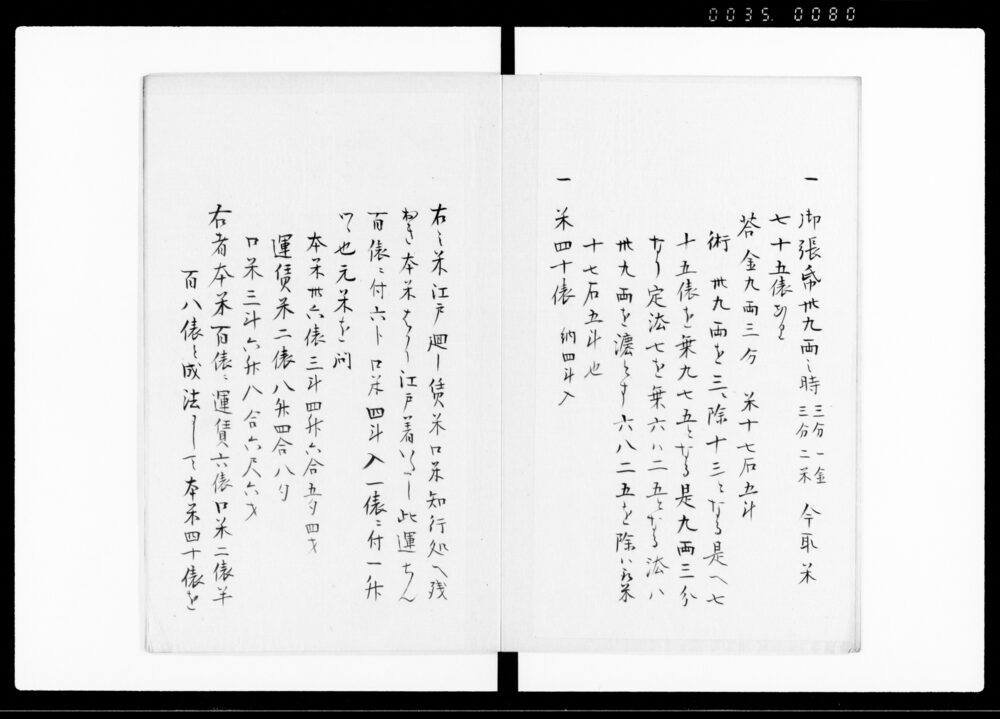 0035. 0080
一 御張帋卅九両之時 三分一金 三分二米 今取米
七十五俵ありと
答 金九両三分 米十七石五斗
術 卅九両を三、除十三となる是へ七
十五俵を乗九七五となる是九両三分
なり定法七を乗六八二五となる法ハ
卅九両を法とす六八二五を除ハ米
十七石五斗也
一 米四十俵 納四斗入
右之米江戸廻し賃米口米知行処へ残
本米江戸着此運ちん
百俵ニ付六ト口米四斗入一俵ニ付一升
ツヽ也元米を問
本米卅六俵三斗四升六合五夕四才
運賃米二俵八升四合八夕
口米三斗六升八合六尺六才
右者本米百俵ニ運賃六俵口米二俵半
百八俵と成法として本米四十俵を